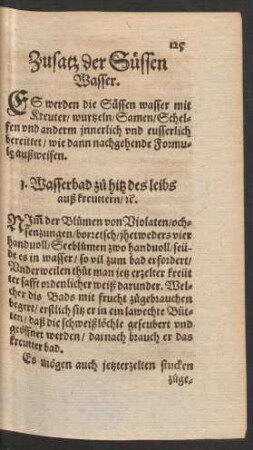 125
Zusatz der Süssen
Wasser.
ES werden die Süssen wasser mit
Kreuter / wurtzeln / Samen / Schel-
fen vnd anderm jnnerlich vnd eusserlich
bereittet / wie dann nachgehende Formu-
len außweisen.
1. Wasserbad zů hitz des leibs
auß kreuttern / ꝛc.
NIm̃ der Blůmen von Violaten / och-
senzungen / borretsch / jhetweders vier
handuoll / Seeblůmen zwo handuoll / seu-
de es in wasser / so vil zum bad erfordert /
Vnderweilen thůt man jetz erzelter kreut-
ter safft ordenlicher weiß darunder. Wel-
cher dis Bads mit frucht zůgebrauchen
begert / erstlich sitz er in ein lawechte Büt-
ten / daß die schweißlöchle geseubert vnd
geöffnet werden / darnach brauch er das
kreutter bad.
Es mögen auch jetzterzelten stucken
zůge-